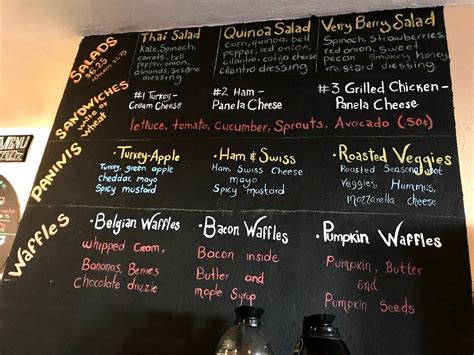 SALADS
$6.25
Thai Salad
Kale, Spinach,
carrots, bell
pepper, onion,
almonds, sesame
dressing
Quinoa Salad
corn, quinoa, bell
pepper, red onion,
cilantro
cilantro dressing
Verry Berry Salad
Spinach, strawberries,
red onion, sweet
pecan Smokey honey
mustard dressing
SANDWICHES
white or
wheat
#1 Turkey -
Cream Cheese
#2. Ham -
Panela Cheese
#3 Grilled Chicken -
Panela Cheese
lettuce, tomato, Cucumber, Sprouts, Avocado (.50¢)
PANINIS
• Turkey-Apple
Turkey, green apple
cheddar, mayo
Spicy mustard
• Ham & Swiss
Ham, Swiss Cheese
mayo
Spicy mustard
• Roasted Veggies
Roasted Seasonal
Veggies, Hummus,
mozzarella cheese
Waffles
• Belgian Waffles
whipped Cream,
Bananas, Berries
chocolate drizzle
• Bacon Waffles
Bacon inside
Butter and
maple Syrup
• Pumpkin Waffles
Pumpkin, Butter
and
Pumpkin Seeds
MENU